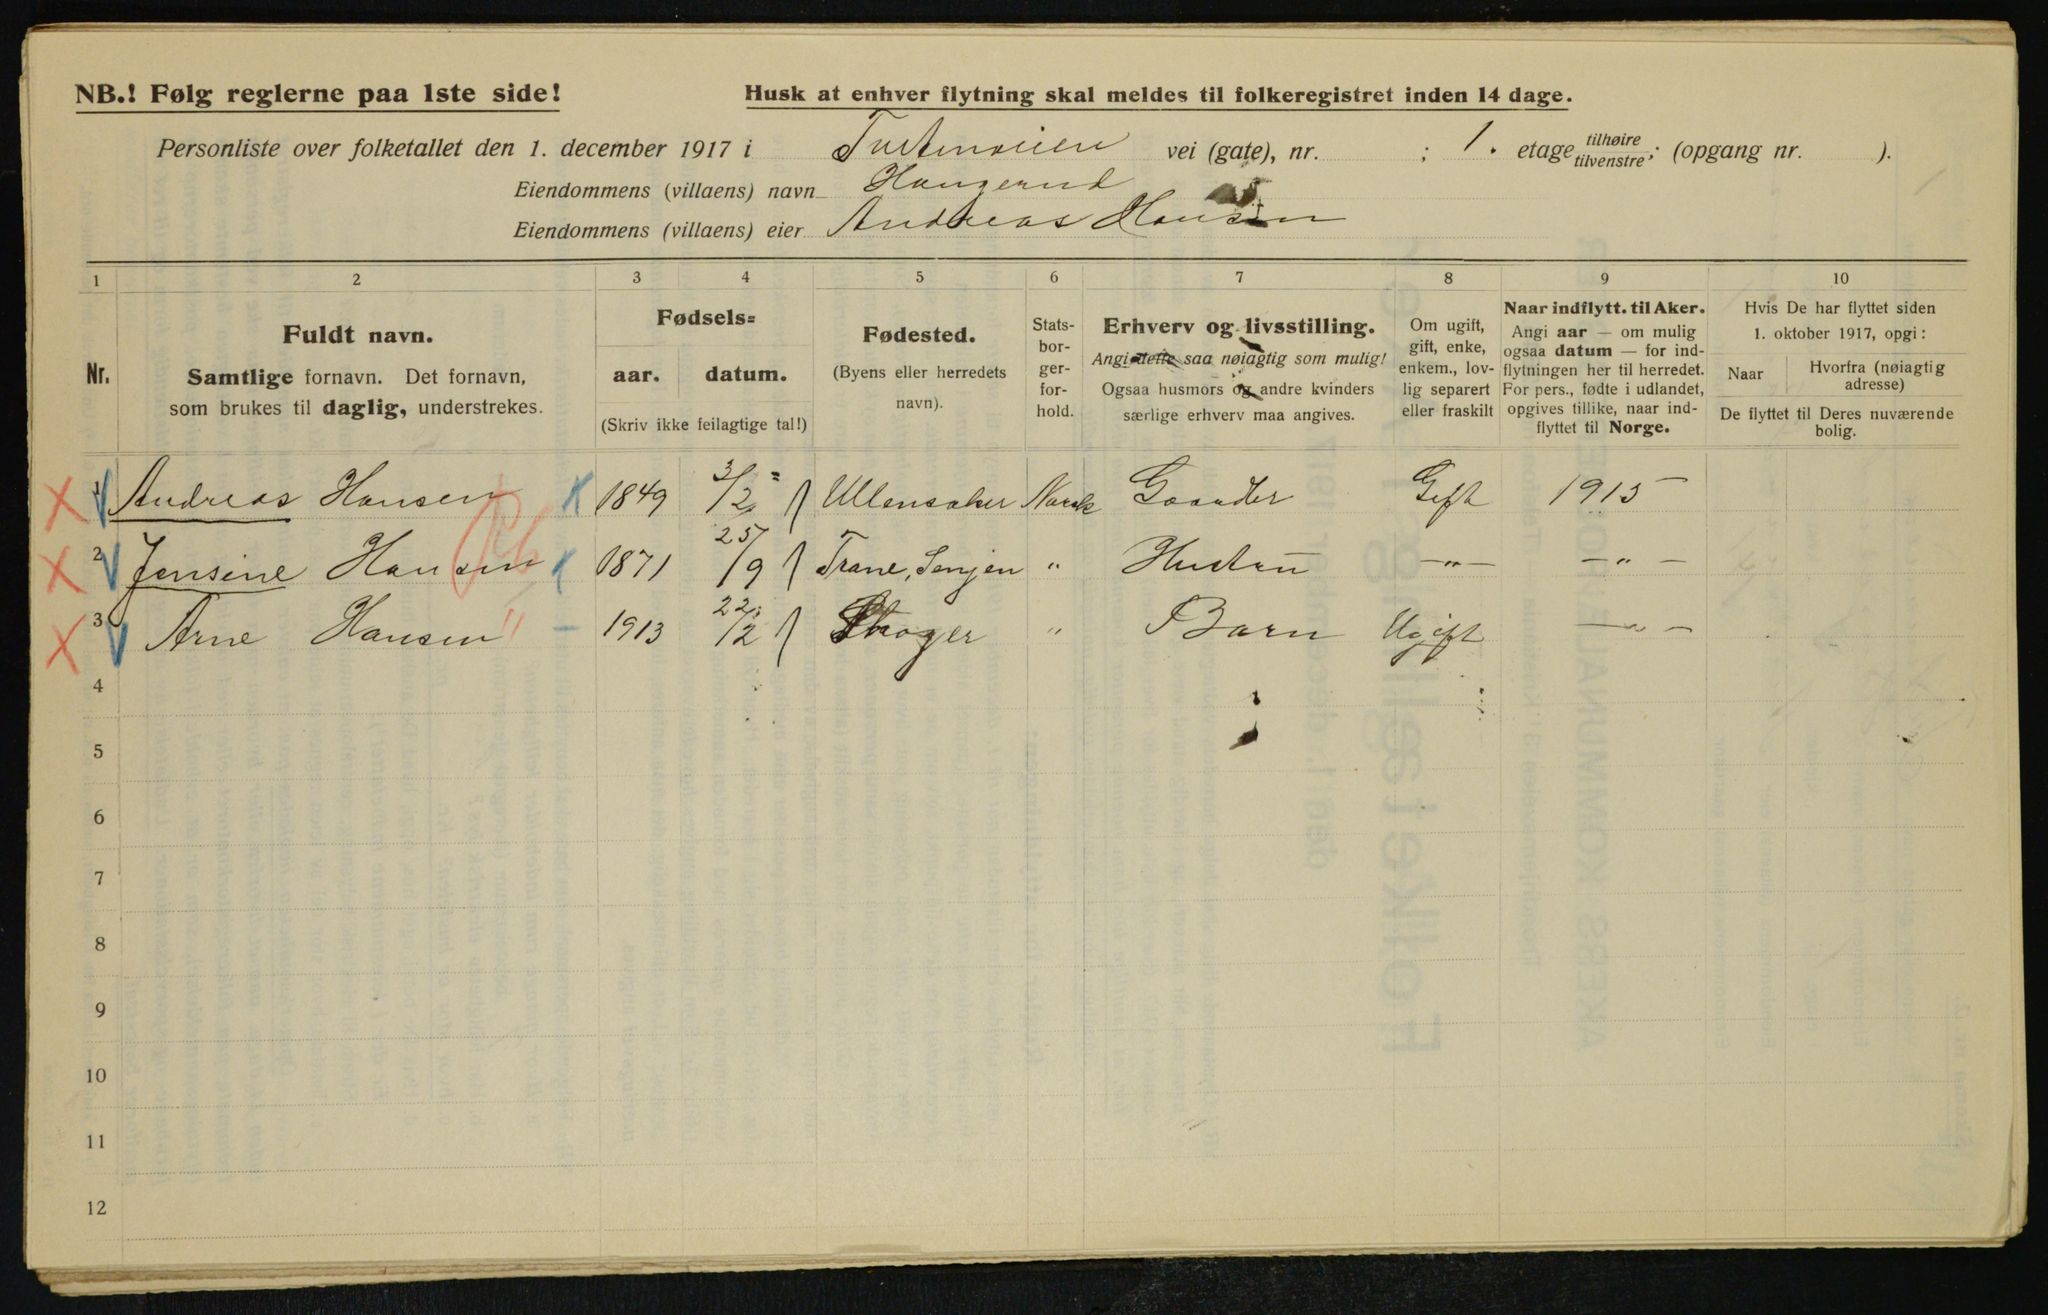 NB.! Følg reglerne paa 1ste side!
Husk at enhver flytning skal meldes til folkeregistret inden 14 dage.
Personliste over folketallet den 1. december 1917 i vei (gate), nr. ; 1. etage tilhøire tilvenstre; (opgang nr. ).
Eiendommens (villaens) navn Haugerud
Eiendommens (villaens) eier Andreas Hansen
1 2 3 4 5 6 7 8 9 10
Nr.
Fuldt navn.
Samtlige fornavn. Det fornavn,
som brukes til daglig, understrekes.
Fødsels=
aar. datum.
(Skriv ikke feilagtige tal!)
Fødested.
(Byens eller herredets
navn).
Stats-
bor-
ger-
for-
hold.
Erhverv og livsstilling.
Angi dette saa nøiagtig som mulig!
Ogsaa husmors og andre kvinders
særlige erhverv maa angives.
Om ugift,
gift, enke,
enkem., lov-
lig separert
eller fraskilt
Naar indflytt. til Aker.
Angi aar — om mulig
ogsaa datum — for ind-
flytningen her til herredet.
For pers., fødte i udlandet,
opgives tillike, naar ind-
flyttet til Norge.
Hvis De har flyttet siden
1. oktober 1917, opgi:
Naar
Hvorfra (nøiagtig
adresse)
De flyttet til Deres nuværende
bolig.
1 Andreas Hansen 1849 3/2 Ullensaker Norsk Gift 1915
2 Jensine Hansen 1871 25/9 Trane, Senjen " Hustru —"— —"—
3 Arne Hansen 1913 22/2 " Barn Ugift —"—
4
5
6
7
8
9
10
11
12